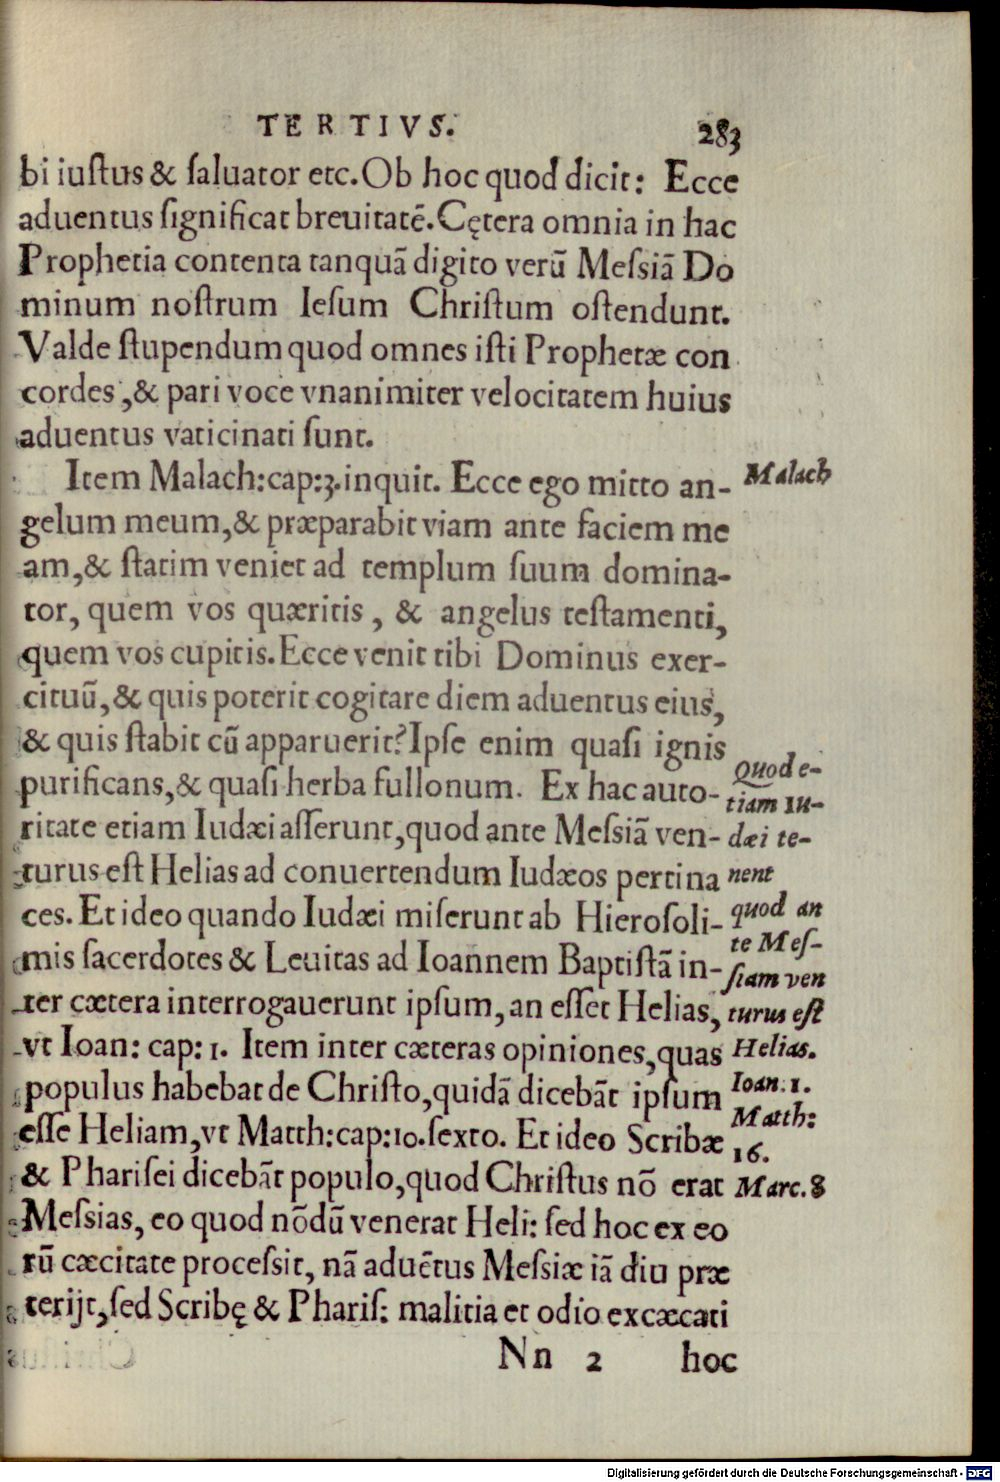 TERTIVS. 283
bi iuſtus & ſaluator etc. Ob hoc quod dicit: Ecce
aduentus ſignificat breuitatē. Cętera omnia in hac
Prophetia contenta tanquā digito verū Meſsiā Do
minum noſtrum Ieſum Chriſtum oſtendunt.
Valde ſtupendum quod omnes iſti Prophetæ con
cordes, & pari voce vnanimiter velocitatem huius
aduentus vaticinati ſunt.
Item Malach: cap: 3. inquit. Ecce ego mitto an-
gelum meum, & præparabit viam ante faciem me
am, & ſtatim veniet ad templum ſuum domina-
tor, quem vos quæritis, & angelus teſtamenti,
quem vos cupitis. Ecce venit tibi Dominus exer-
cituū, & quis poterit cogitare diem aduentus eius,
& quis ſtabit cū apparuerit? Ipſe enim quaſi ignis
purificans, & quaſi herba fullonum. Ex hac auto-
ritate etiam Iudæi aſſerunt, quod ante Meſsiā ven-
turus eſt Helias ad conuertendum Iudæos pertina
ces. Et ideo quando Iudæi miſerunt ab Hieroſoli-
mis ſacerdotes & Leuitas ad Ioannem Baptiſtā in-
ter cætera interrogauerunt ipſum, an eſſet Helias,
vt Ioan: cap: 1. Item inter cæteras opiniones, quas
populus habebat de Chriſto, quidā dicebāt ipſum
eſſe Heliam, vt Matth: cap: 10. ſexto. Et ideo Scribæ
& Phariſei dicebāt populo, quod Chriſtus nō erat
Meſsias, eo quod nōdū venerat Heli: ſed hoc ex eo
rū cæcitate proceſsit, nā aduētus Meſsiæ iā diu præ
terijt, ſed Scribę & Phariſ: malitia et odio excæcati
Nn 2 hoc
Malach
Quod e-
tiam Iu-
dæi te-
nent
quod an
te Meſ-
ſiam ven
turus eſt
Helias.
Ioan. 1.
Matth:
16.
Marc. 8
Digitalisierung gefördert durch die Deutsche Forschungsgemeinschaft - DFG